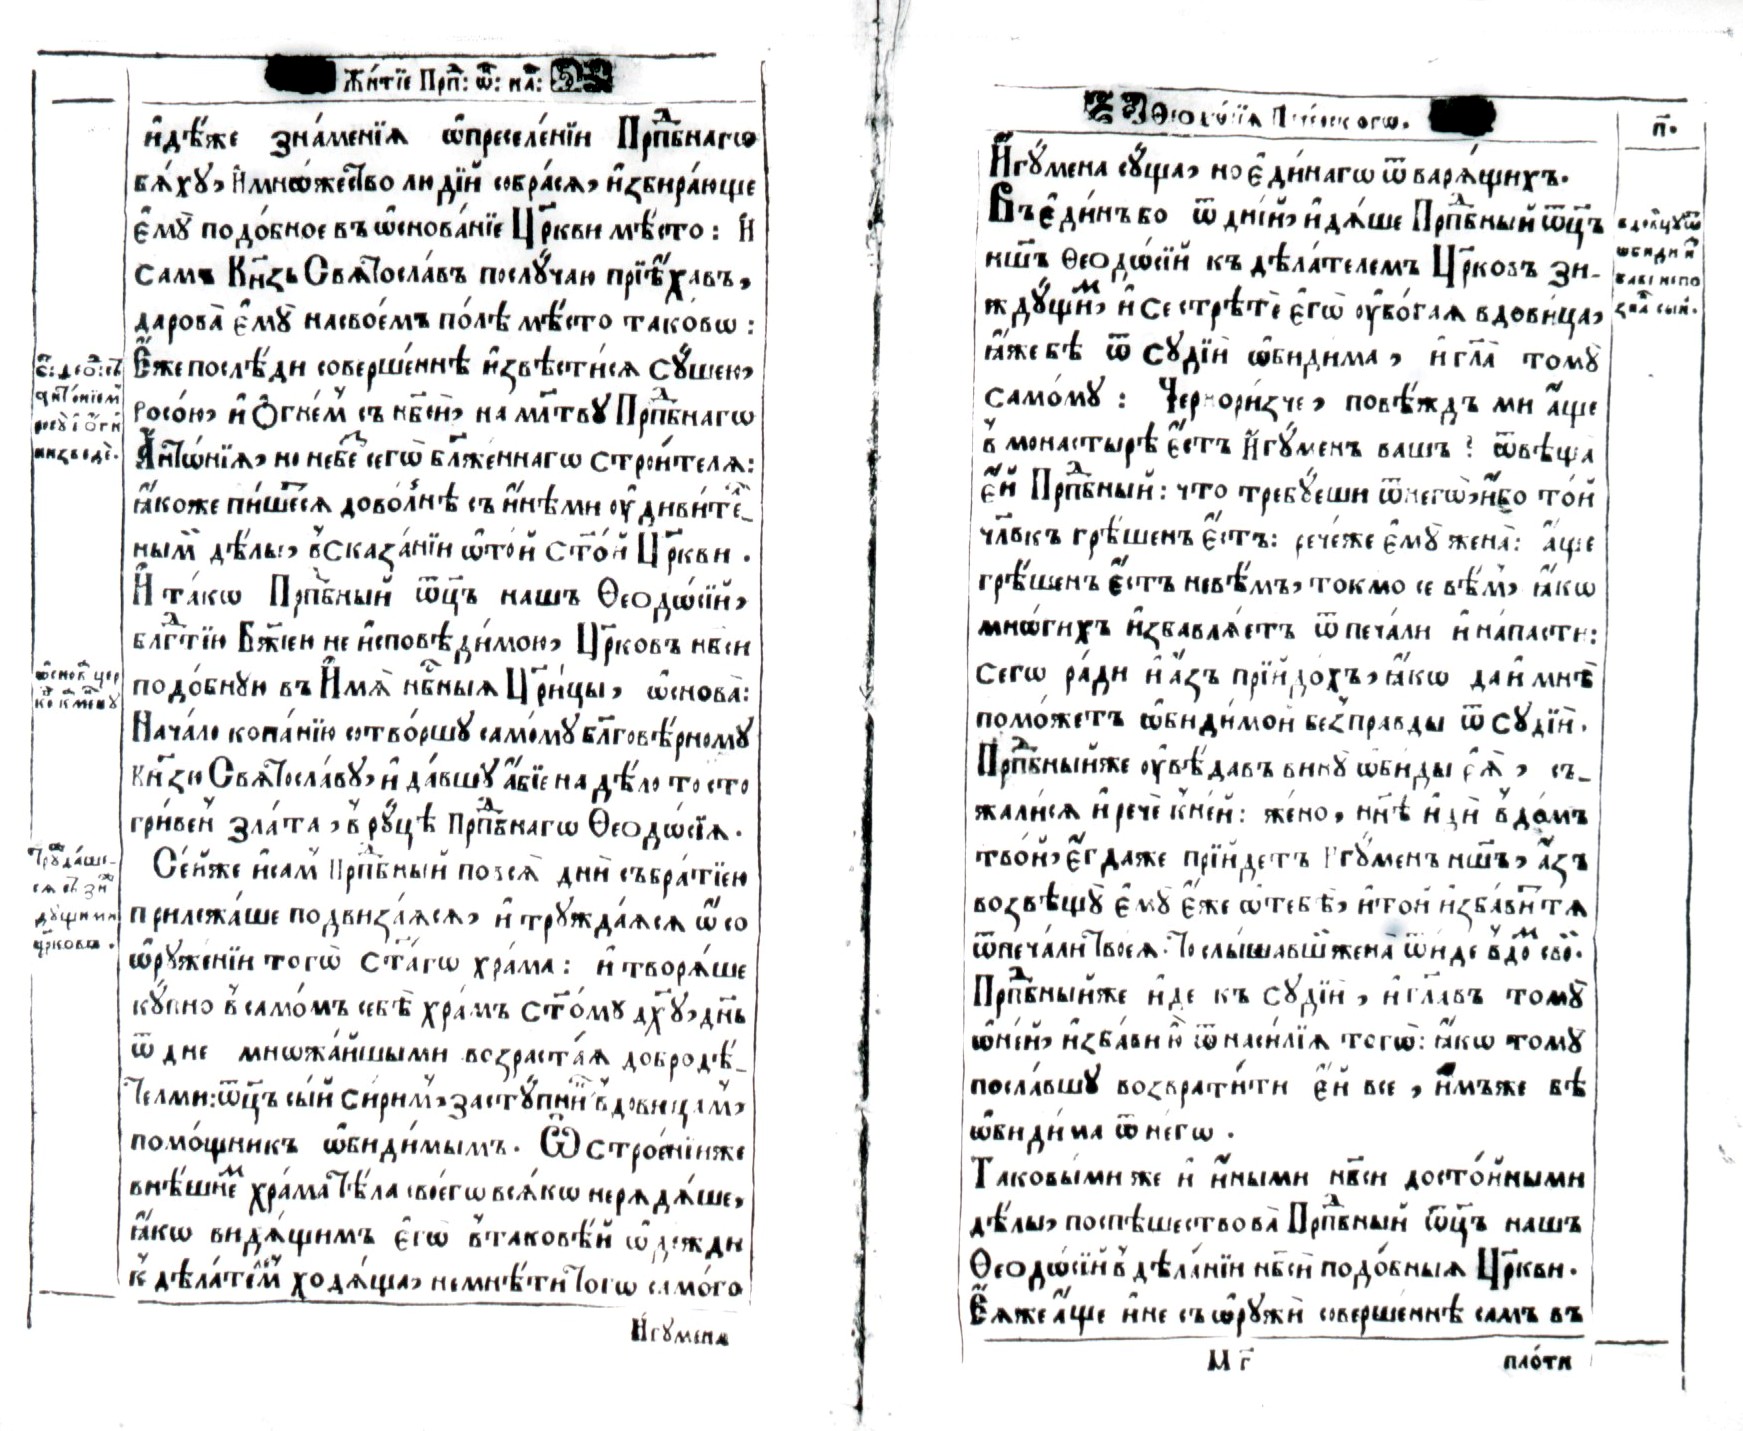 Жи́тїе Прⷣп: ѿ: на́:
и҆дѣ́же зна́менїѧ ѡ҆преселе́нїи Прⷣпбнагѡ
бѧ́хꙋ, И҆мно́жество люді́й собра́сѧ, и҆збира́юще
є҆мꙋ̀ подо́бное въ ѡ҆снова́нїе Цр҃кви мѣ́сто: И҆
самъ Кн҃зь Свѧтосла́въ послꙋ́чаю прїѣ́хавъ,
дарова̀ є҆мꙋ̀ насвое́мъ по́лѣ мѣ́сто тако́во:
Е҆́же послѣ́ди соверше́ннѣ и҆звѣсти́сѧ сꙋ́шею,
росо́ю, и҆ О҆гне́мъ съ нб҃сѐ, на мл҃твꙋ Прⷣпбнагѡ
А҆нтѡ́нїѧ, но небе́ сегѡ̀ бл҃же́ннагѡ строи́телѧ:
ꙗ҆́коже пи́шетсѧ дово́лнѣ съ и҆нѣ́ми ᲂу҆диви́те_
ным дѣ́лы, въ сказа́нїи ѡ҆то́й ст҃о́й Цр҃кви.
И҆ та́кѡ Прⷣпбный ѿц҃ъ нашъ Ѳеодѡ́сїй,
бл҃гⷣтїю Бж҃їею не и҆сповѣди́мою, Цр҃ковъ нб҃си
подо́бнꙋю въ И҆́мѧ нб҃ныѧ Цр҃и́цы, ѡ҆снова̀:
Нача́ло копа́нїю сотво́ршꙋ само́мꙋ бл҃говѣ́рномꙋ
кн҃зю Свѧтосла́вꙋ, и҆ да́вшꙋ а҆́бїе на дѣ́ло то сто
гри́вен зла́та, в рꙋ́цѣ Прⷣпбнагѡ Ѳеодѡ́сїѧ.
Се́йже и҆са́м Прⷣпбный повсѧ̀ дни̑ събра́тїею
прилежа́ше подвиза́ѧсѧ, и҆ трꙋжда́ѧсѧ ѡ҆ со
ѡ҆рꙋже́нїи тогѡ̀ ст҃а́гѡ хра́ма: и҆ творѧ́ше
кꙋ́пно в само́мъ себѣ̀ хра́мъ ст҃о́мꙋ дх҃ꙋ, дн҃ь
ѿ дне мнѡжа́йшыми возраста́ѧ добродѣ́_
телми: ѿц҃ъ сы́й си́рим, застꙋ́пний вдови́цам,
помо́щникъ ѡ҆би́димымъ. Ѡ҆ строе́нїиже
внѣ́шнем хра́ма тѣ́ла своегѡ всѧ́кѡ нерѧдѧ́ше,
ꙗ҆́кѡ ви́дѧщимъ є҆гѡ̀ в таковѣ́й ѡ҆де́жди
к дѣла́телем ходѧ́ща, немнѣ́ти того само́го
И҆гꙋмена
є҆: ѳео: съ
антонїем
росꙋ̀ і ѻ҆гн
низведѐ.
ѡ҆снов цер
ко к мену
Трꙋда́ше_
сѧ съ зи
дꙋщими
цр҃ковь.
Ѳеодо́сїѧ Пече́рскогѡ.
п҃.
И҆гꙋ́мена сꙋ́ща, но є҆ди́нагѡ ѿ варѧ́щихъ.
Въ є҆ди́нъ бо ѿ дні́й, и҆дѧ́ше Прⷣпбный ѿц҃ъ
нш҃ъ Ѳеодѡ́сїй къ дѣла́телемъ Цр҃ковъ зи_
ждꙋ́щим, и҆ се стрѣ́те є҆гѡ̀ ᲂу҆бо́гаѧ вдови́ца,
ꙗ҆́же бѣ̀ ѿ сꙋдїй ѡ҆би́дима, и҆ гл҃а томꙋ̀
само́мꙋ: Черноризче, повѣ́ждъ ми а҆́ще
в монастырѣ̀ є҆́стъ И҆гꙋ́менъ вашъ? ѿвѣща̀
є҆́й Прⷣпбный: что тре́бꙋеши ѿнегѡ̀, и҆́бо то́й
чл҃вкъ грѣ́шенъ є҆́стъ: рече́же є҆мꙋ̀ жена̀: а҆́ще
грѣ́шенъ є҆́стъ невѣ́мъ, токмо се вѣ́м, ꙗ҆́кѡ
мнѡ́гихъ и҆збавлѧ́етъ ѿ печа́ли и҆ напа́сти:
Сегѡ ра́ди и҆ а҆́зъ прїидо́хъ, ꙗ҆́кѡ да и҆ мнѣ̀
помо́жетъ ѡ҆би́димой без пра́вды ѿ сꙋді́й.
Прⷣпбныйже ᲂу҆вѣ́давъ винꙋ̀ ѡ҆би́ды є҆ѧ̀, съ_
жали́сѧ и҆ речѐ к не́й: же́но, нн҃ѣ и҆дѝ в до́мъ
тво́й, є҆гда́же прїи́детъ И҆гꙋ́менъ нш҃ъ, а҆́зъ
возвѣщꙋ̀ є҆мꙋ̀ є҆́же ѡ҆тебѣ̀, и҆то́й и҆зба́вит тѧ
ѿпеча́ли твоеѧ̀. То слы́шавши жена̀ ѿи́де в дом сво́й.
Прⷣпбныйже и҆де къ сꙋдїй, и҆ гл҃авъ томꙋ̀
ѡ҆не́й, и҆зба́ви ю҆ ѿ наси́лїѧ тогѡ̀: ꙗ҆́кѡ томꙋ
посла́вшꙋ возврати́ти є҆́й все, и҆́мъже бѣ̀
ѡ҆би́дима ѿ негѡ.
Таковы́ми же и҆ и҆ны́ми нб҃си досто́йными
дѣ́лы, поспѣ́шествова̀ Прⷣпбный ѿц҃ъ нашъ
Ѳеодѡ́сїй в дѣ́ланїи нб҃си подо́бныѧ Цр҃кви.
Е҆ѧ́же а҆́ще и҆ не съѡ҆рꙋжѝ соверше́ннѣ самъ въ
М г҃
пло́ти
вдовцꙋ ѿ
ѡ҆биди и҆